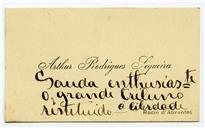 Arthur Rodrigues Sequeira
Sauda enthusiás.te
o grande
restituido á liberdade
Rocio d'Abrantes